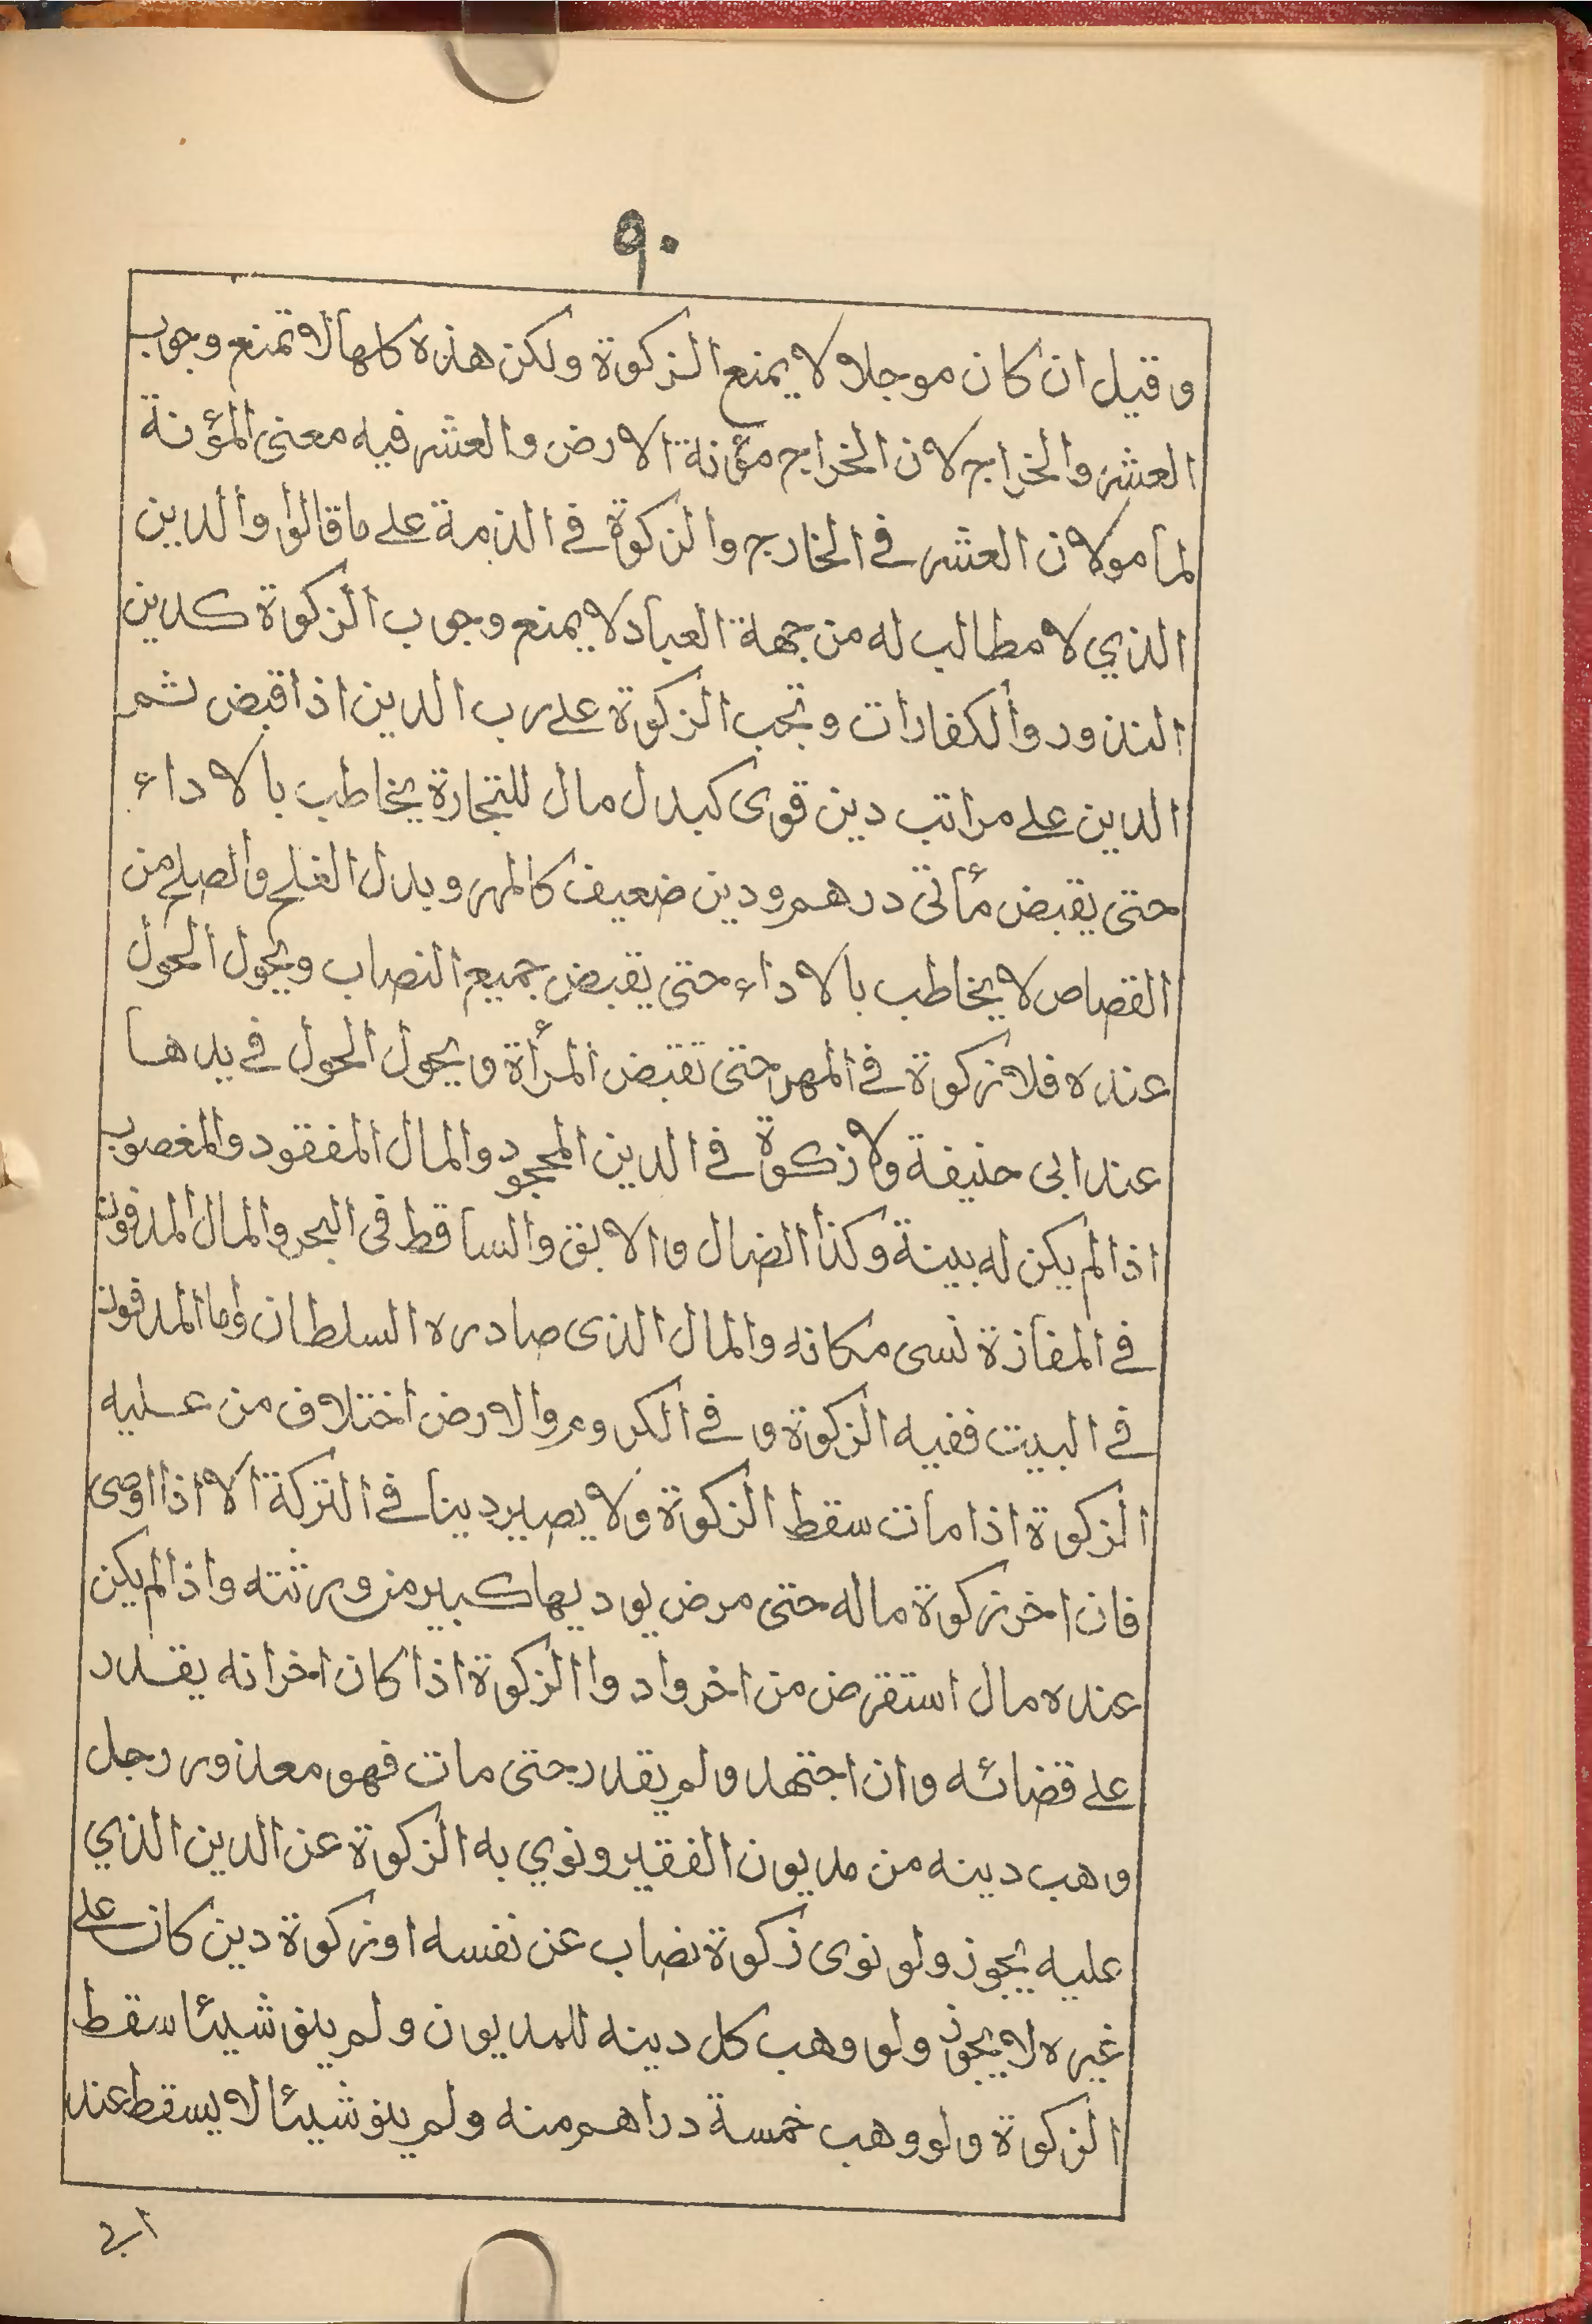 ٩٠
وقيل ان كان موجلا لا يمنع الزكوة ولكن هذه كلها لا تمنع وجوب
العشر والخراج لان الخراج مؤنة الارض والعشر فيه معنى المؤنة
لما مولان العشر في الخارج والزكوة في الذمة على ما قالوا والدين
الذي لا مطالب له من جهة العباد لا يمنع وجوب الزكوة كدين
النذور والكفارات وتجب الزكوة على رب الدين اذا قبض ثم
الدين على مراتب دين قوى كبدل مال للتجارة يخاطب بالاداء
حتى يقبض مأتى درهم ودين ضعيف كالمهر وبدل الخلع والصلح من
القصاص لا يخاطب بالاداء حتى يقبض جميع النصاب ويحول الحول
عنده فلا زكوة في المهر حتى تقبض المرأة ويحول الحول في يدها
عند ابى حنيفة ولا زكوة في الدين المجحود والمال المفقود والمغصوب
اذا لم يكن له بينة وكذا الضال والابق والساقط فى البحر والمال المدفون
في المفازة نسى مكانه والمال الذى صادره السلطان واما المدفون
في البيت ففيه الزكوة و في الكروم والارض اختلاف من عليه
الزكوة اذا مات سقط الزكوة ولا يصير دينا في التركة الا اذا اوصى
فان اخر زكوة ماله حتى مرض يوديها كبير من ورثته واذا لم يكن
عنده مال استقرض من اخر وادوا الزكوة اذا كان اخر انه يقدر
على قضائه وان اجتهد ولم يقدر حتى مات فهو معذور رجل
وهب دينه من مديون الفقير ونوي به الزكوة عن الدين الذي
عليه يجوز ولو نوى زكوة نصاب عن نفسه او زكوة دين كان على
غيره لا يجوز ولو وهب كل دينه للمديون ولم ينو شيئا سقط
الزكوة ولو وهب خمسة دراهم منه ولم ينو شيئا لا يسقط عند
ابي